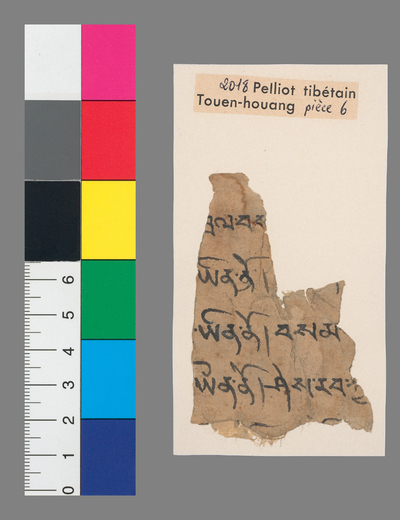 2018 Pelliot tibétain
Touen-houang pièce 6
འུལ་བར
ཡོན་ནོ།
ཡོན་ནོ། བ་སམ
ཡོན་ནོ། ཤེས་རབ་
6
5
4
3
2
1
0